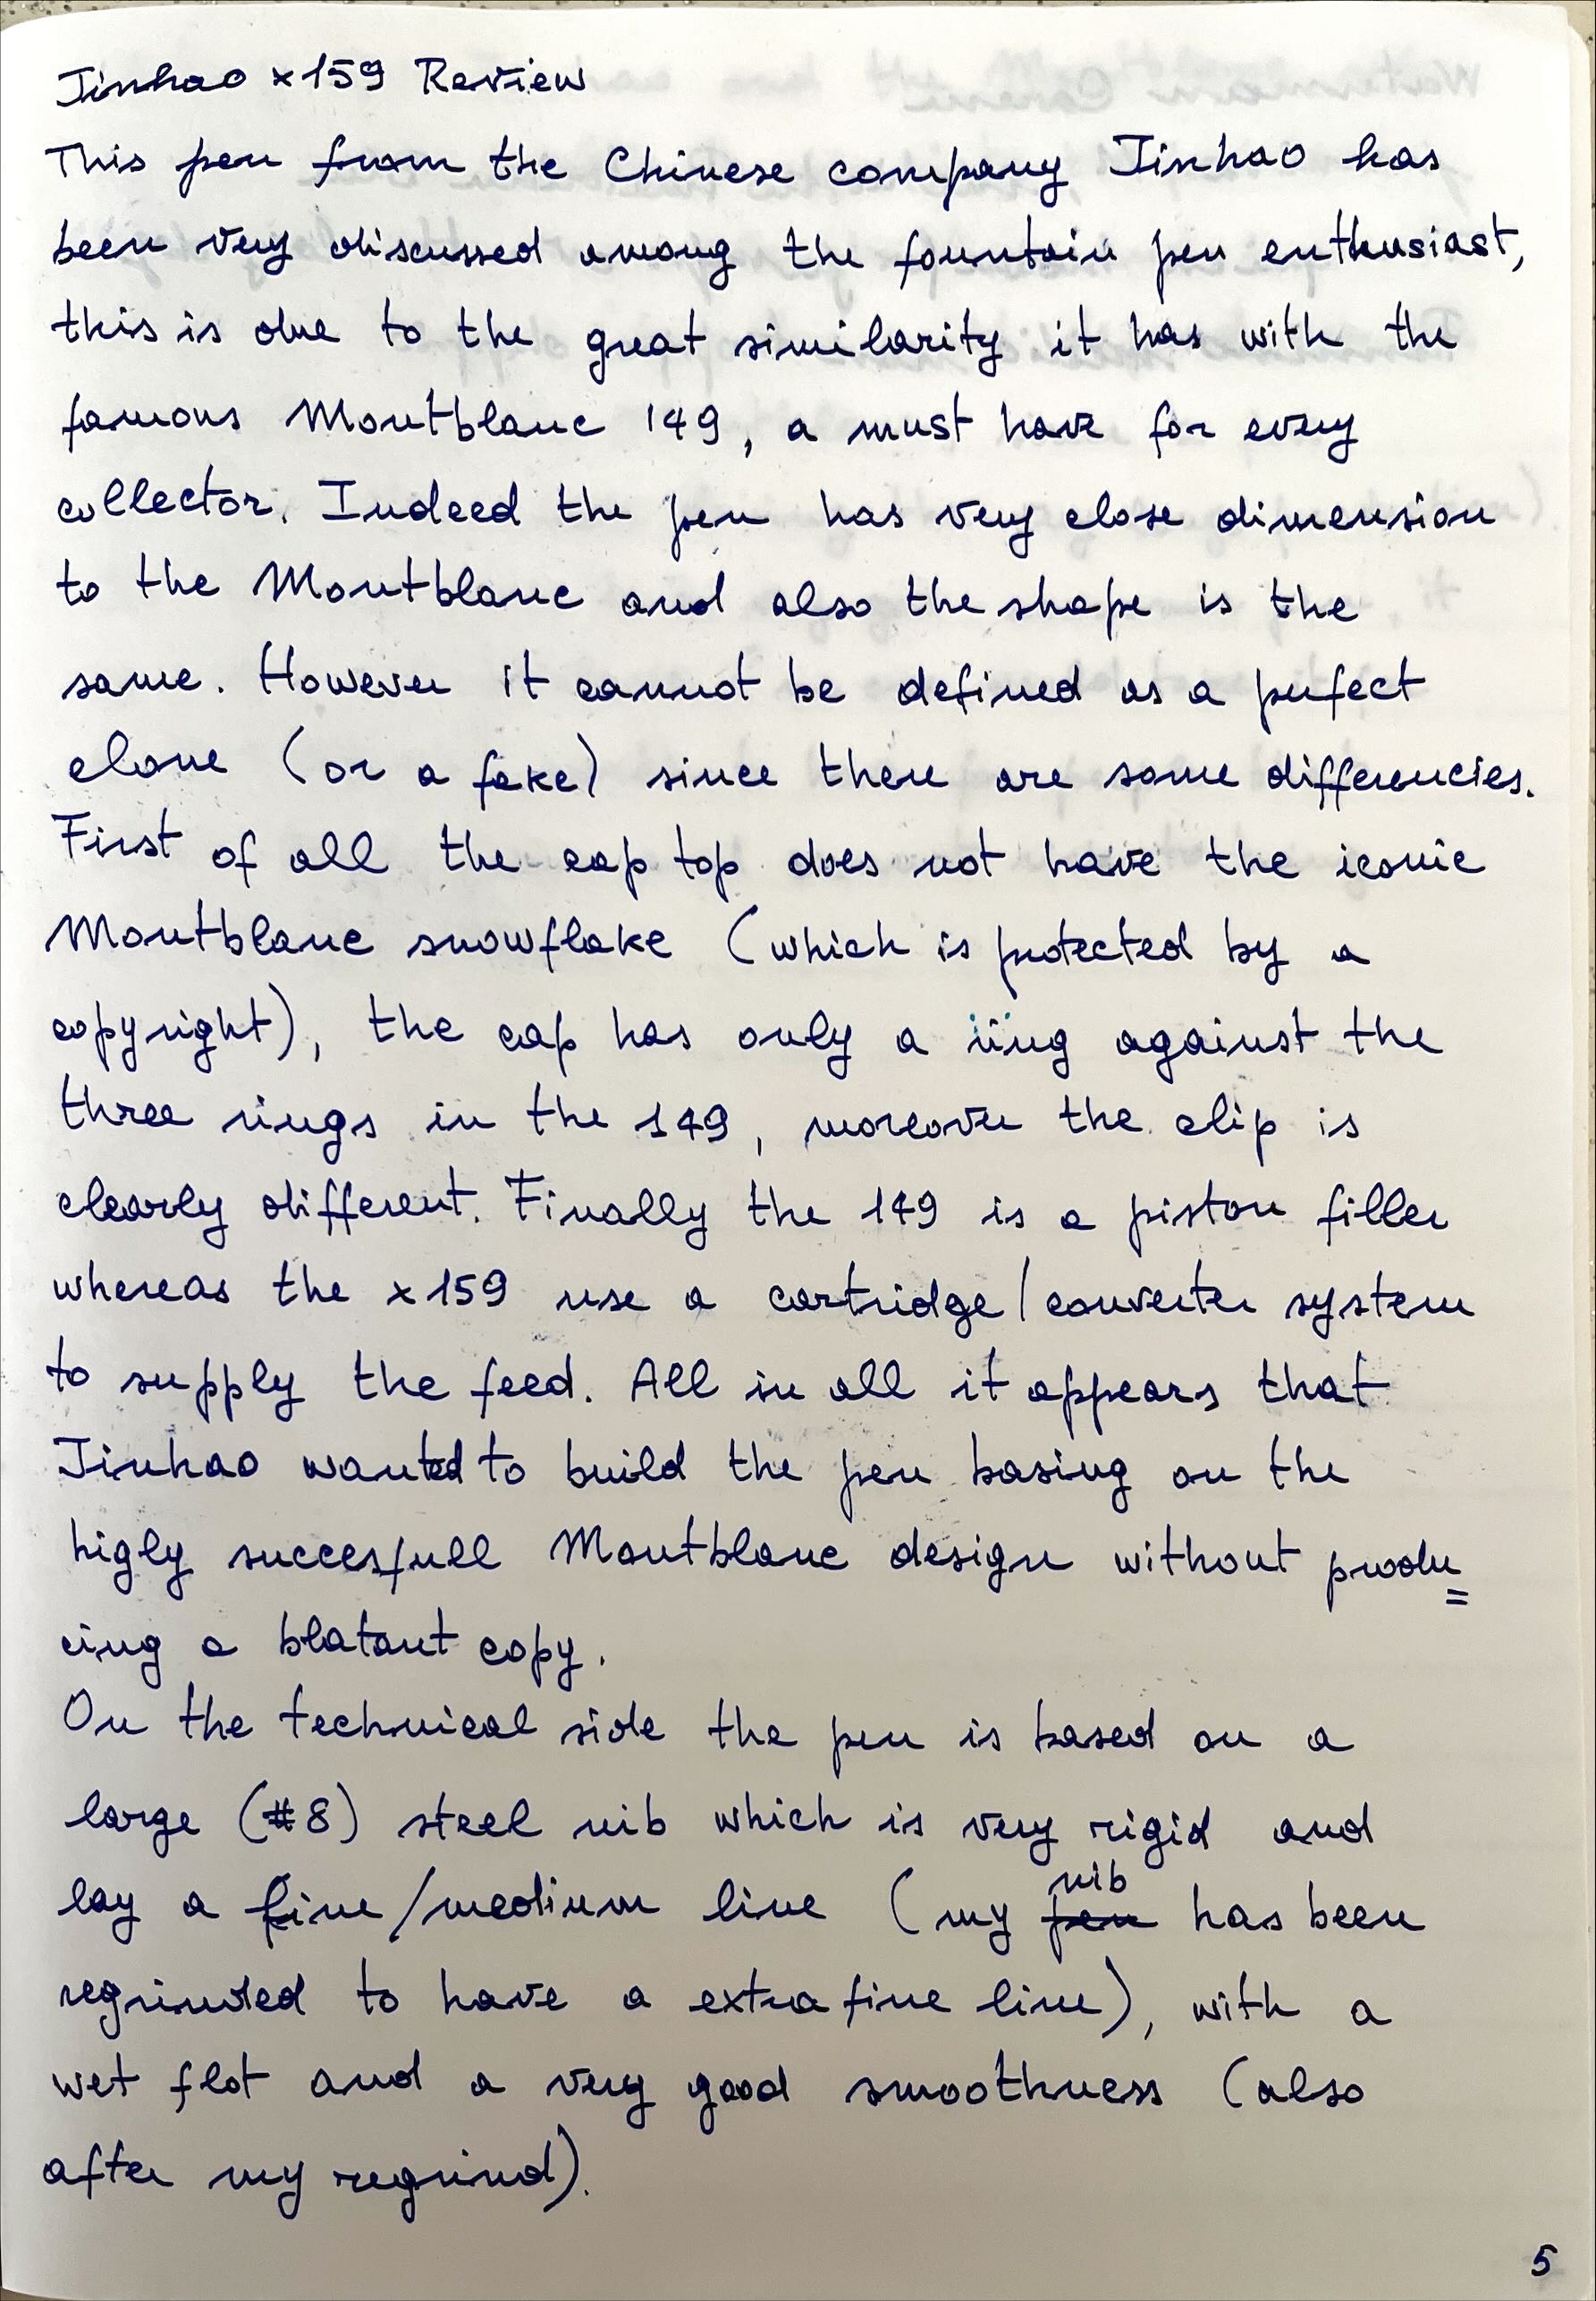 Jinhao x159 Review
This pen from the Chinese company Jinhao has
been very discussed among the fountain pen enthusiast,
this is due to the great similarity it has with the
famous Montblanc 149, a must have for every
collector. Indeed the pen has very close dimension
to the Montblanc and also the shape is the
same. However it cannot be defined as a perfect
clone (or a fake) since there are some differencies.
First of all the cap top does not have the iconic
Montblanc snowflake (which is protected by a
copyright), the cap has only a ring against the
three rings in the 149, moreover the clip is
clearly different. Finally the 149 is a piston filler
whereas the x159 use a cartridge/converter system
to supply the feed. All in all it appears that
Jinhao wanted to build the pen basing on the
higly succesfull Montblanc design without produ=
cing a blatant copy.
On the technical side the pen is based on a
large (#8) steel nib which is very rigid and
lay a fine/medium line (my pen nib has been
regrinded to have a extra fine line), with a
wet flot and a very good smoothness (also
after my regrind).
5